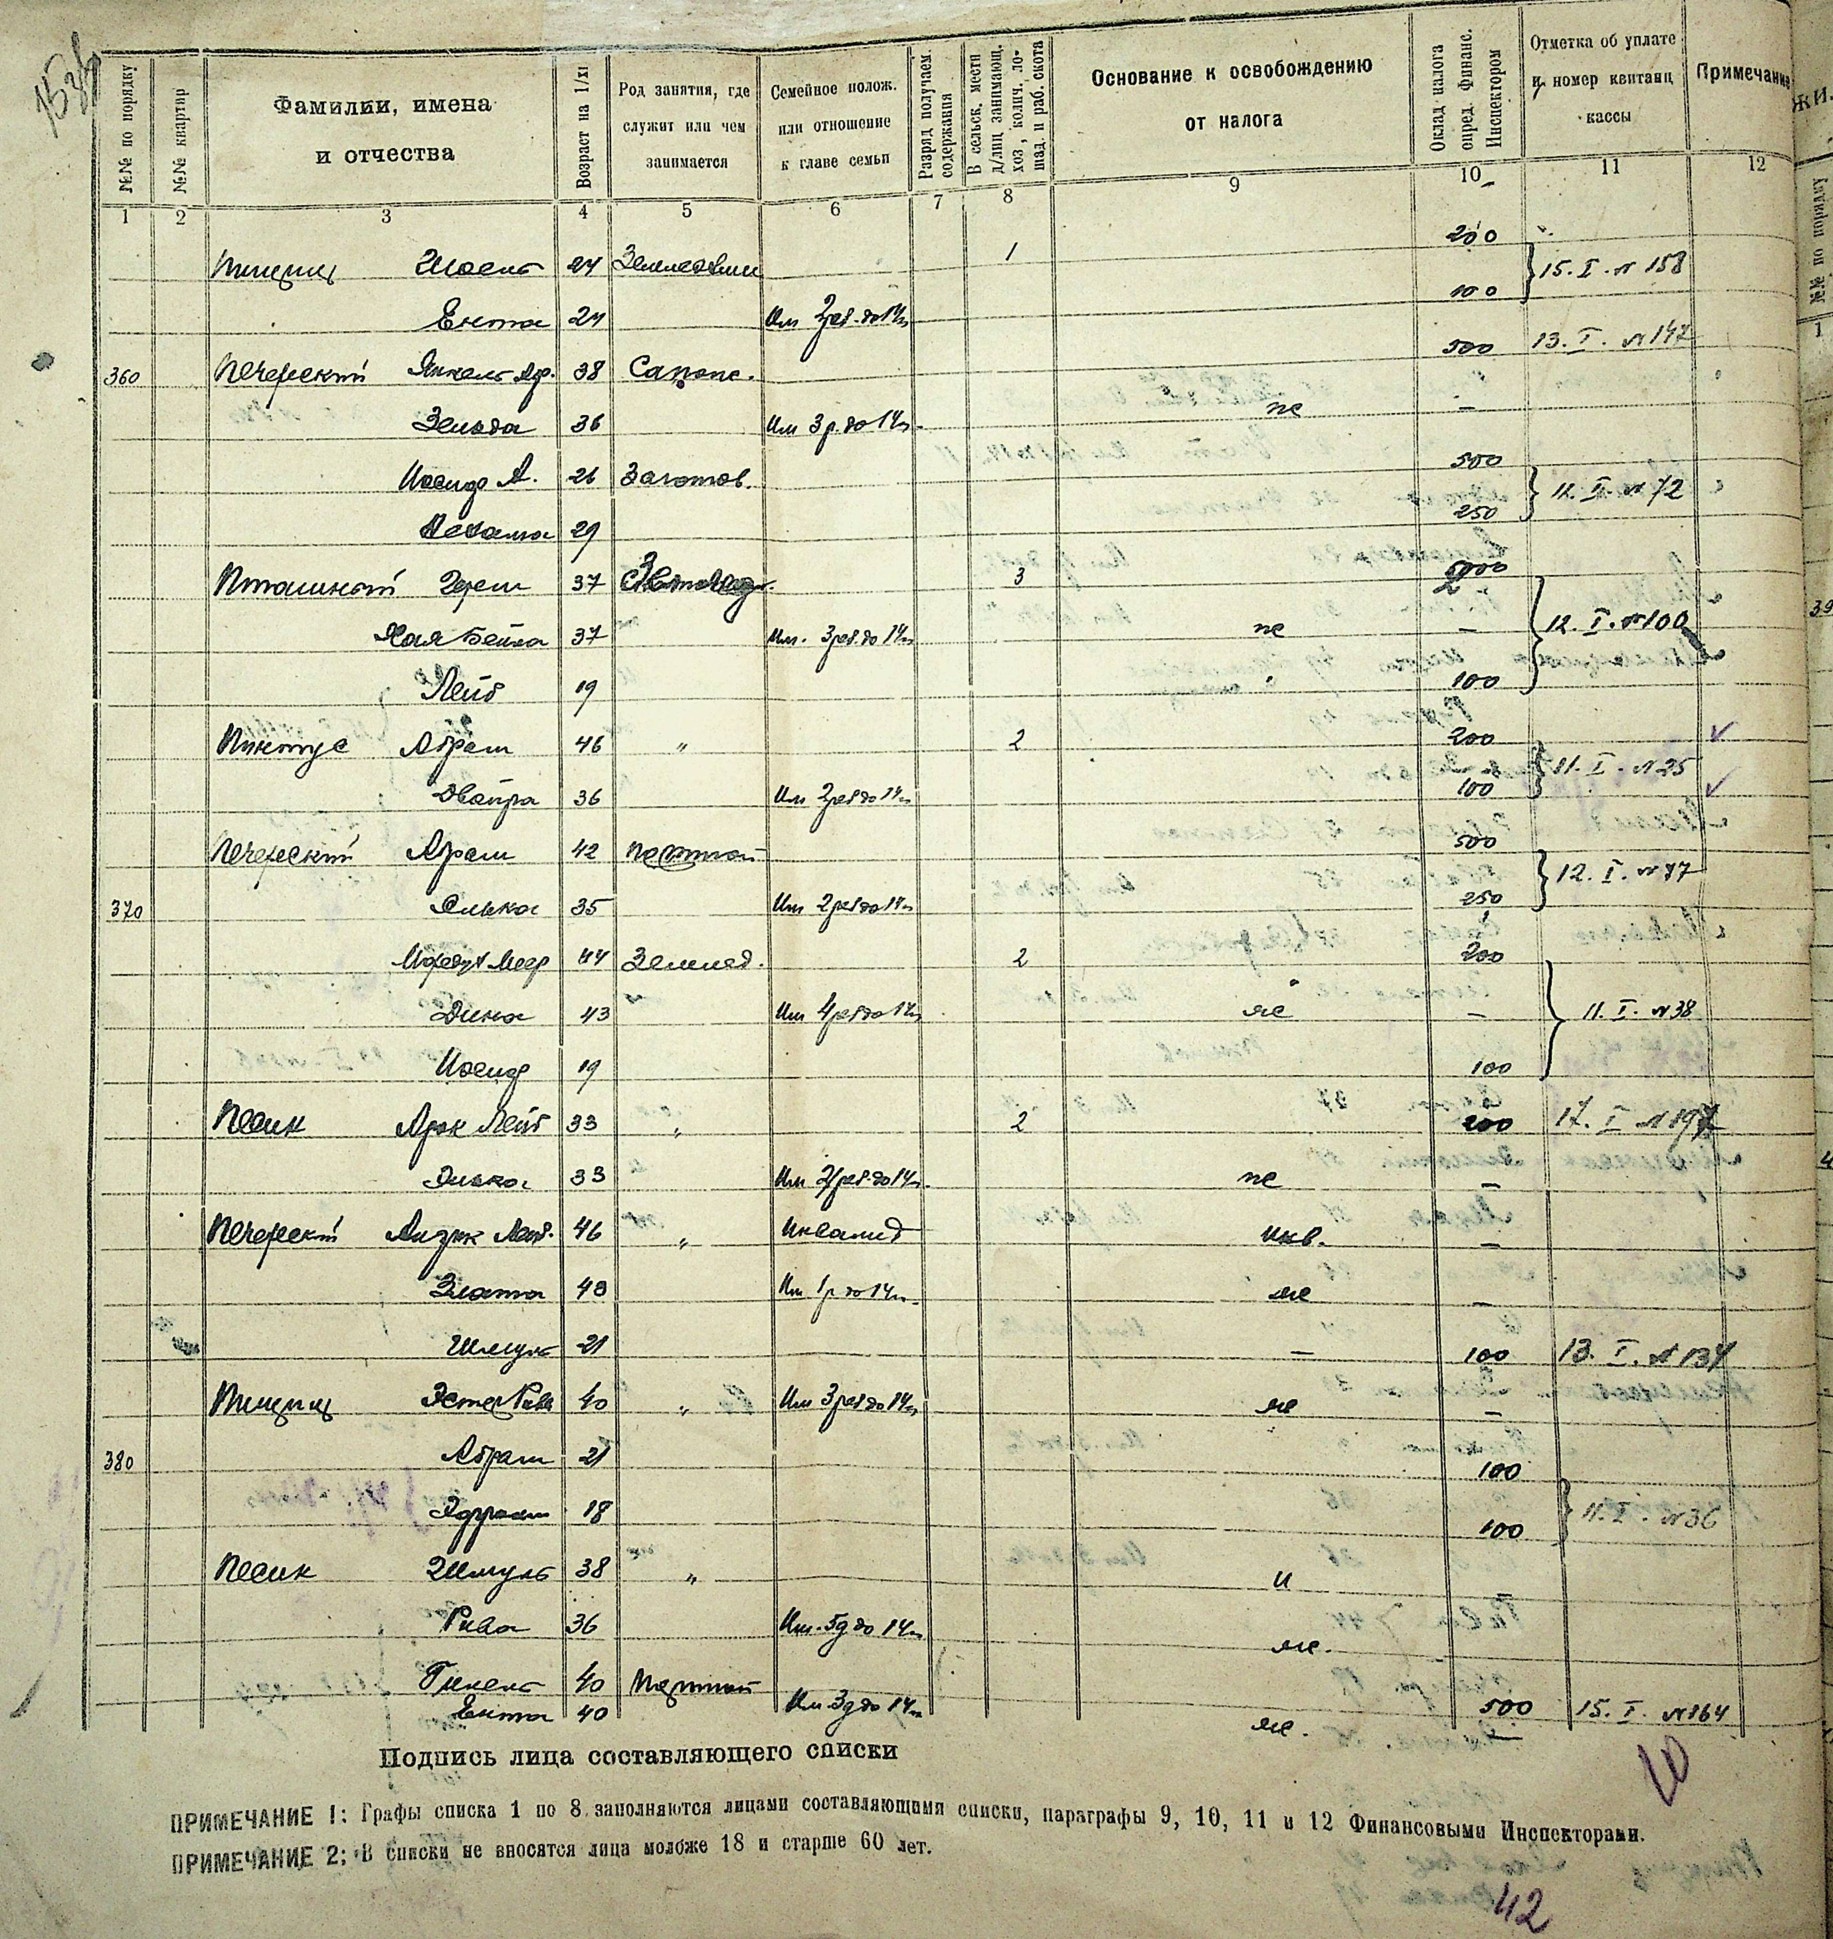 153об
№№ по порядку
№№ квартир
Фамилии, имена и отчества
Возраст на 1/XI
Род занятия, где служит или чем занимается
Семейное полож. или отношение к главе семьи
Разряд получаем. содержания
В сельск. местн д/лиц занимающ. хоз, колич. лошад. и раб. скота
Основание к освобождению от налога
Оклад налога опред. финанс. Инспектором
Отметка об уплате и номер квитанц кассы
Примечание
1 2 3 4 5 6 7 8 9 10 11 12
24 1 200 15. I. № 158
Ента 24 Им 2 реб. до 14 л 100
360 Печерский Янкель 38 Сапож. 500 13. I. № 147
Зельда 36 Им 3 р. до 14 л не –
Иосиф А. 26 Заготов. 500 12. I. № 72
Нехама 29 250
Пташный Герш 37 3
Хая Бейла 37 Им. 3 реб. до 14 л не – 12. I. № 100
Лейб 19 100
Пинтус Абрам 46 " 2 200 11. I. № 25
Двойра 36 Им 2 реб до 14 л 100
Печерский Абрам 42 Портной 500 12. I. № 77
370 Элька 35 Им 2 реб до 14 л 250
Мордух Меер 44 Землед. 2 200
Дина 43 Им 4 реб до 14 л не – 11. I. № 38
Иосиф 19 100
Песик Арон Лейб 33 " 2 200 17. I №
Элька 33 Им 2 реб. до 14 л. не –
Печерский Айзик Лейб. 46 " Инвалид инв. –
Злата 43 Им 1 р до 14 л. не –
Шмуль 21 – 100 13. I. № 134
Эстер Рива 40 " Им 3 реб до 14 л не –
380 Абрам 21 100
Эфроим 18 100 11. I. № 36
Песик Шмуль 38 " и –
Рива 36 Им. 5 д до 14 л не.
40 Портной 500 15. I. № 164
Ента 40 Им 3 д до 14 л не. –
Подпись лица составляющего списки
ПРИМЕЧАНИЕ 1: Графы списка 1 по 8 заполняются лицами составляющими списки, параграфы 9, 10, 11 и 12 Финансовыми Инспекторами.
ПРИМЕЧАНИЕ 2: В списки не вносятся лица моложе 18 и старше 60 лет.
42